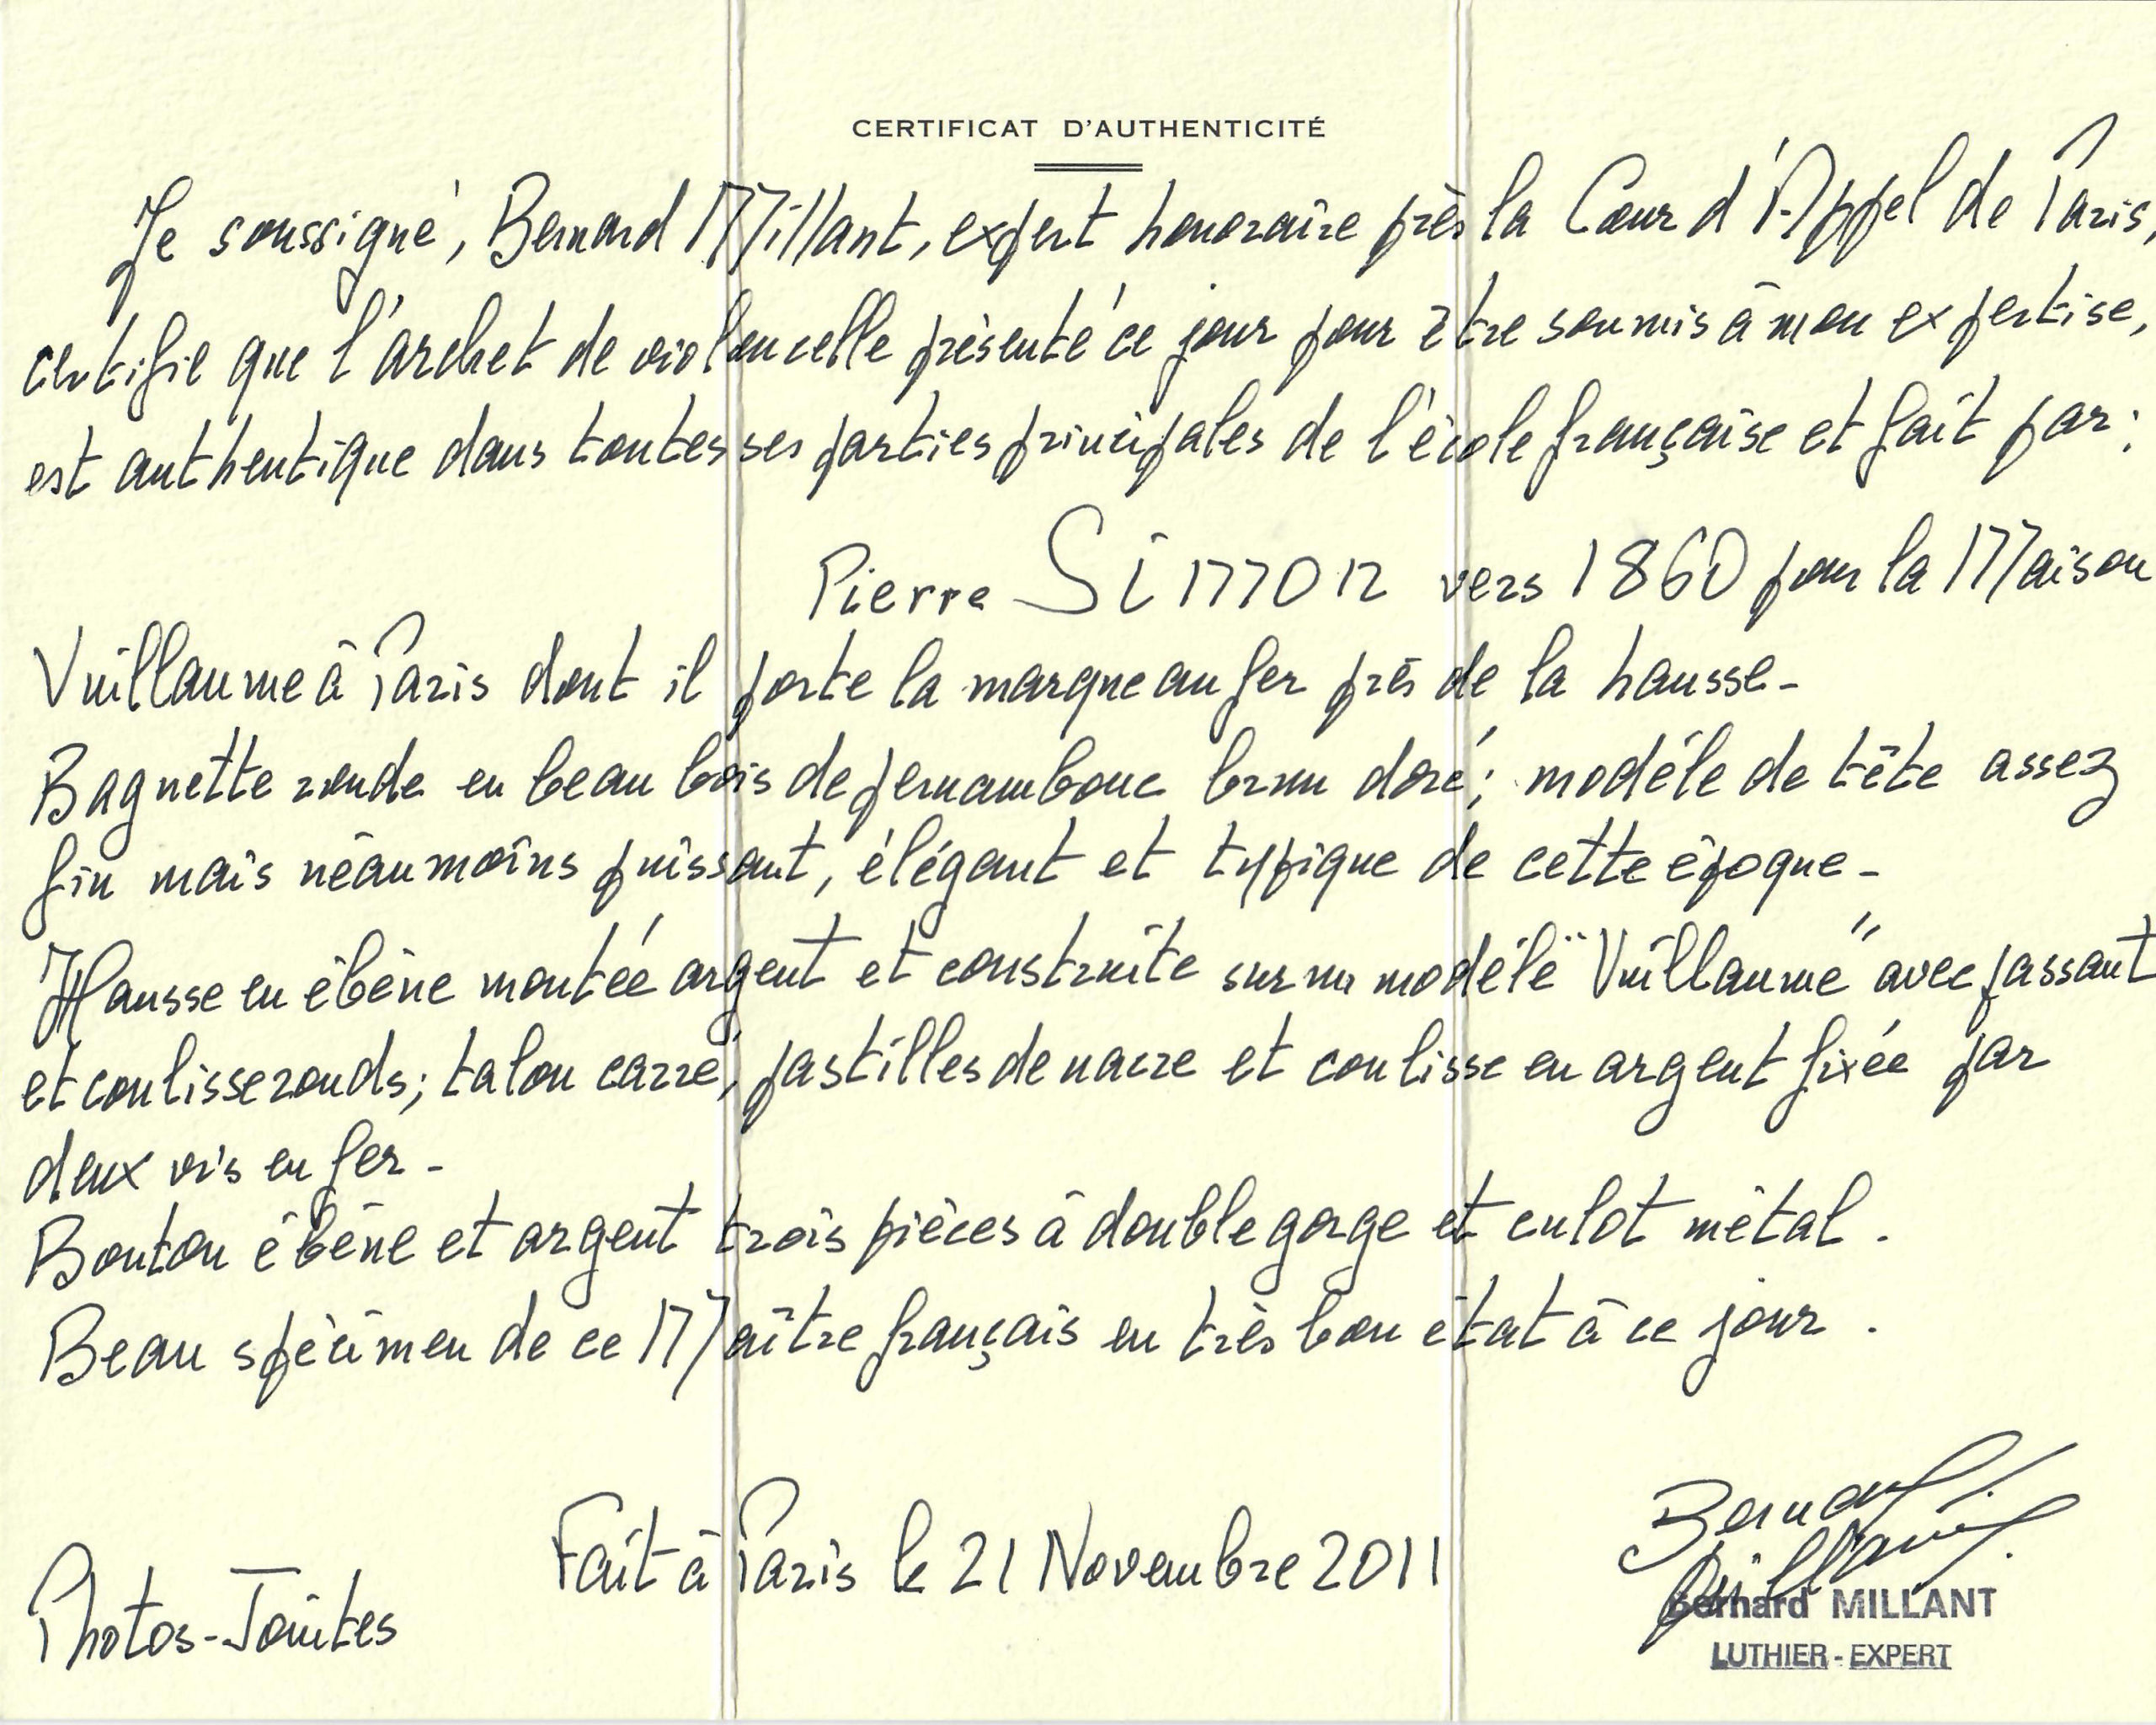 CERTIFICAT D'AUTHENTICITÉ
Je soussigné, Bernard Millant, expert honoraire près la Cour d'Appel de Paris,
certifie que l'archet de violoncelle présenté ce jour pour être soumis à mon expertise,
est authentique dans toutes ses parties principales de l'école française et fait par:
Pierre SIMON vers 1860 pour la Maison
Vuillaume à Paris dont il porte la marque au fer près de la hausse-
Baguette ronde en beau bois de pernambouc brun doré; modèle de tête assez
fin mais néaumoins puissant, élégant et typique de cette époque-
Hausse en ébène montée argent et construite sur un modèle "Vuillaume" avec passant
et coulisse ronds; talon carré, pastilles de nacre et coulisse en argent fixée par
deux vis en fer-
Bouton ébène et argent trois pièces à double gorge et culot métal.
Beau spécimen de ce Maître français en très bon état à ce jour.
Fait à Paris le 21 Novembre 2011
Photos-Jointes
Bernard Millant
Bernard MILLANT
LUTHIER-EXPERT